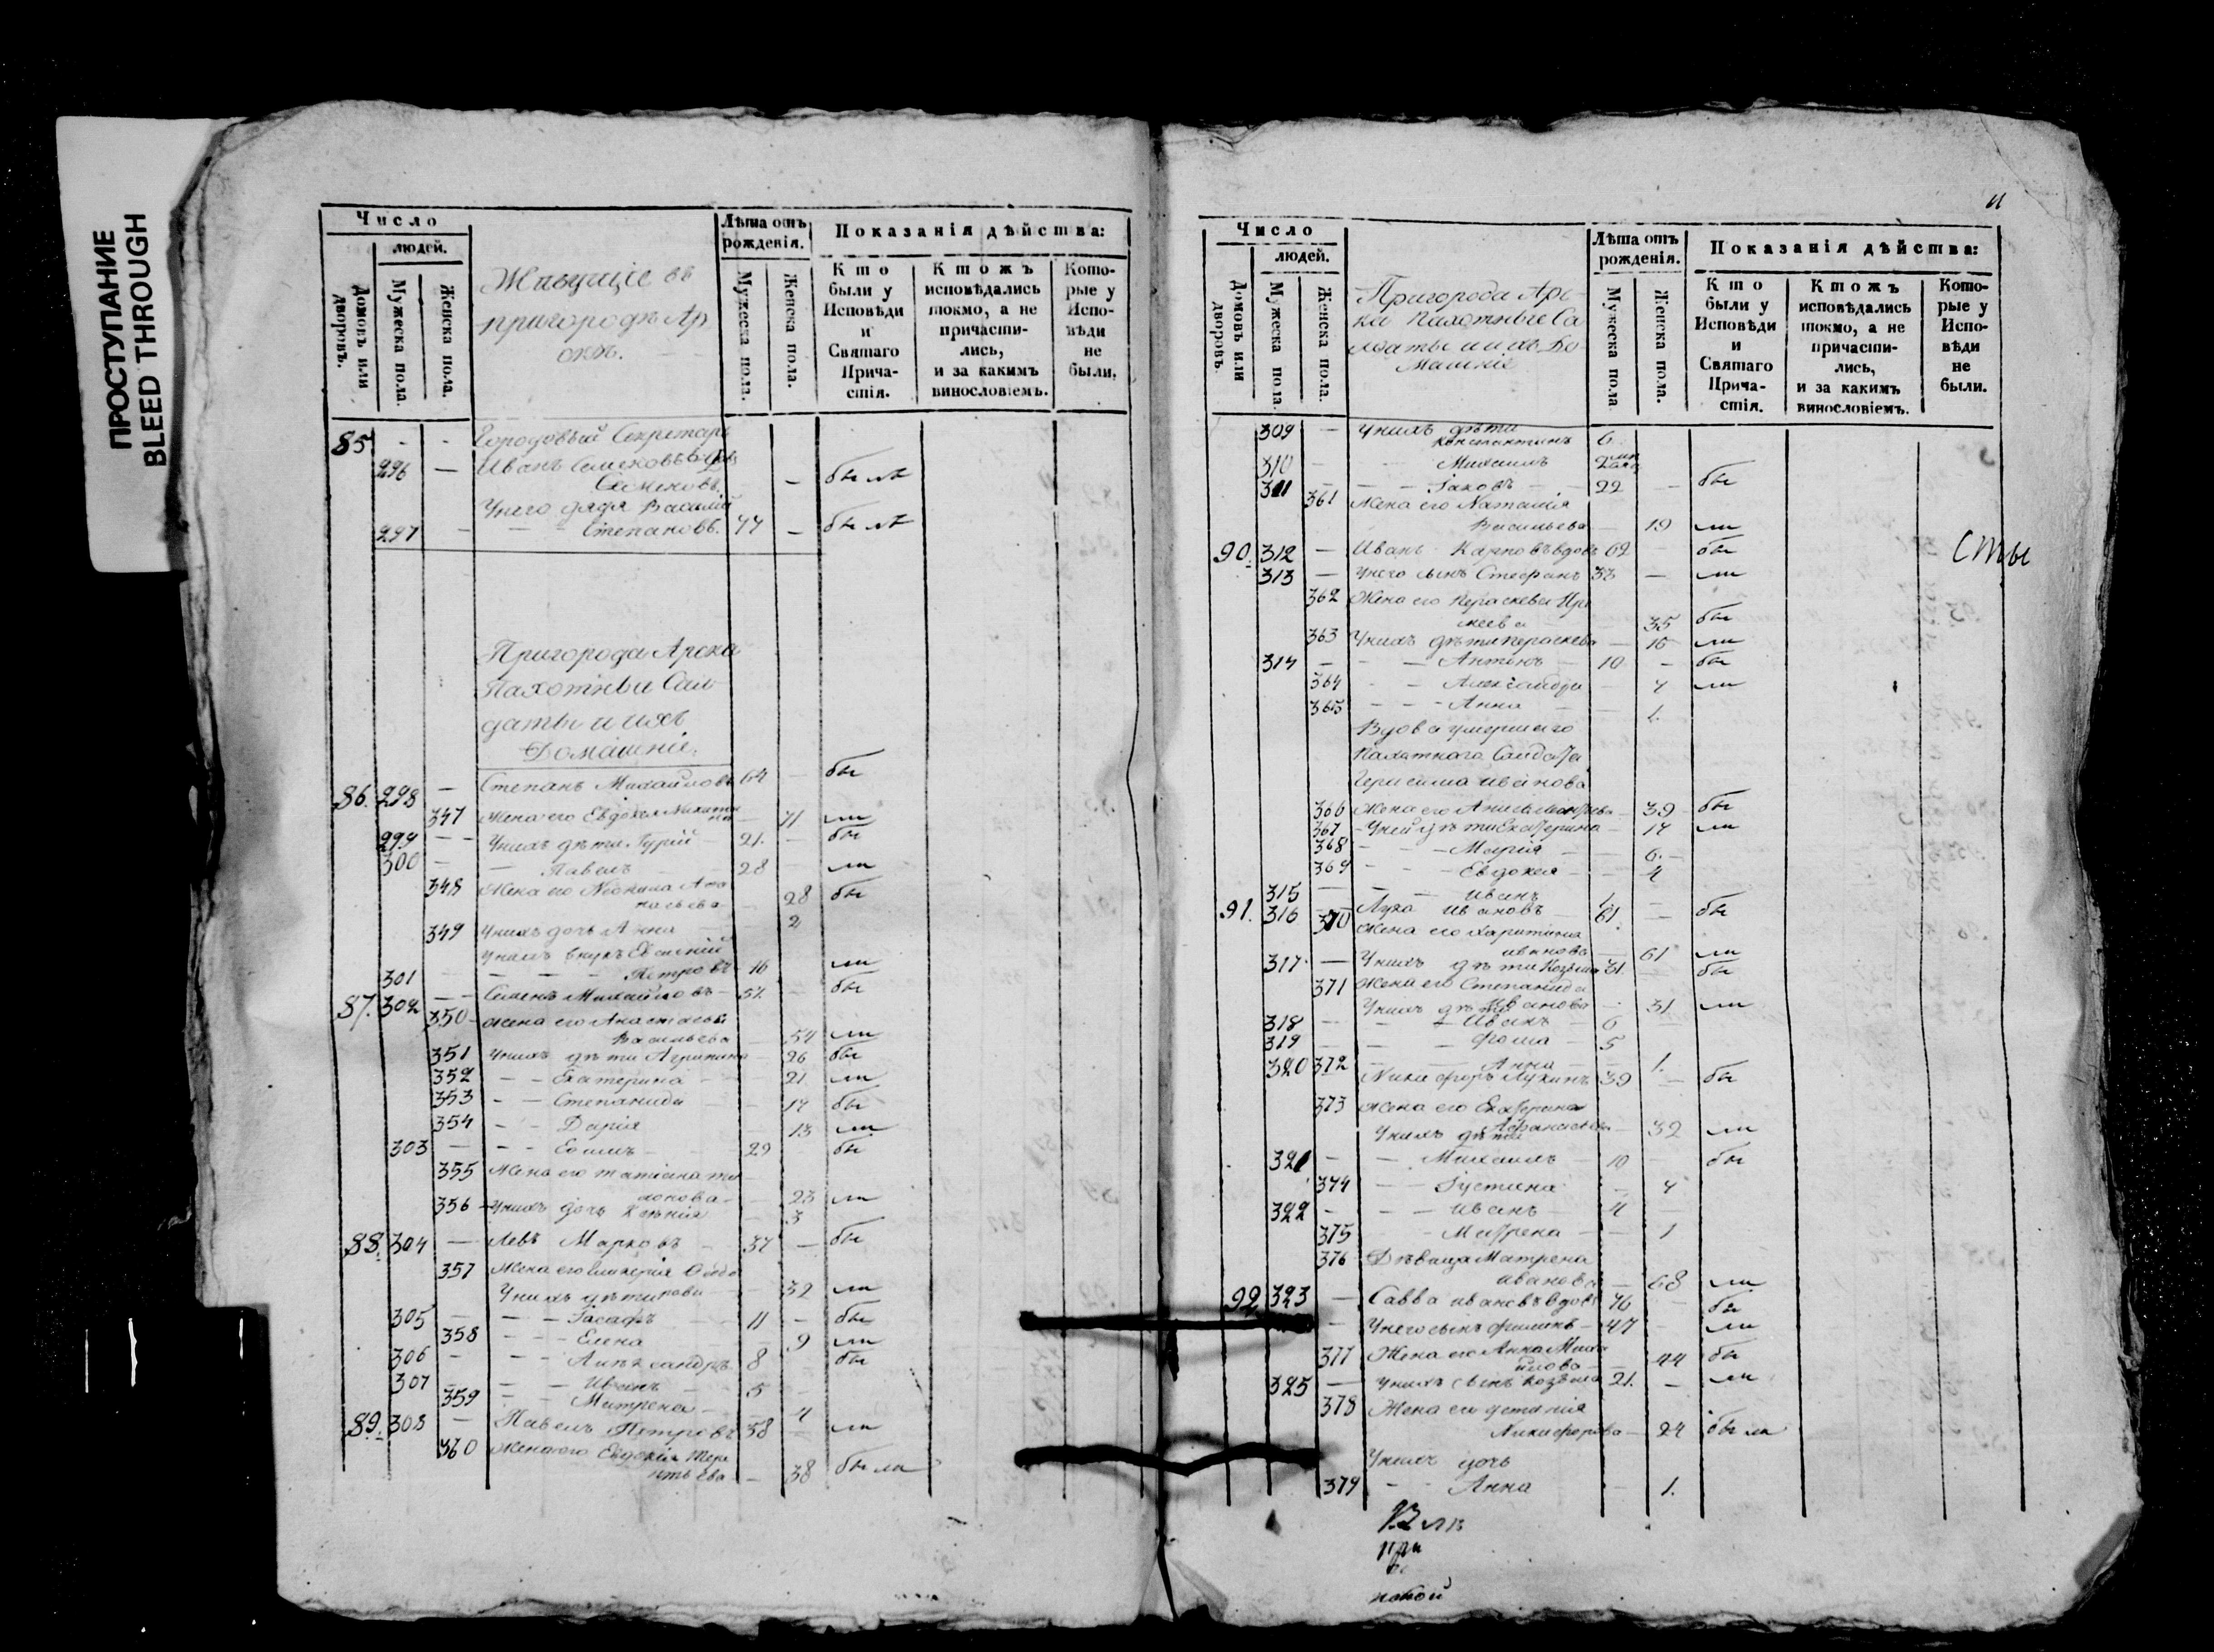 ПРОСТУПАНИЕ
BLEED THROUGH
Число
людей.
Домовъ или дворовъ.
Мужеска пола.
Женска пола.
Живущіе въ
пригородѣ Ар
скѣ.
Лѣта отъ
рожденія.
Мужеска пола.
Женска пола.
Показанія дѣйства:
Кто
были у
Исповѣди
и
Святаго
Прича-
стія.
Ктожъ
исповѣдались
токмо, а не
причасти-
лись,
и за какимъ
винословіемъ.
Кото-
рые у
Испо-
вѣди
не
были.
85 - - Городовый Секретарь
296 — Иванъ
Семеновъ. - былъ
Унего дядя Василій
297 - Степановъ. 44 - былъ
Пригорода Арска
Пахотныи Сал
даты и ихъ
Домашніе.
86. 298 — Степанъ Михайловъ 64 - бы
347 Жена его Евдокея Никити
на - 71 ли
299 - - Унихъ дѣти Гурій - 21. - бы
300 - - Павелъ - 28 ли
348 Жена его
28 бы
349 Унихъ дочь Анна - 2
Унихъ внукъ
301 - - Петровъ 16 ли
87. 302 - - Семенъ Михайловъ - 51. - бы
350 - Жена его Анастасья
Васильева - 54 ли
351 Унихъ дѣти Агрипина - 26 бы
352 - - Екатерина - 21. ли
353 - - Степанида - 17 бы
354 - - Дарія - 13 ли
303 - - - 29 бы
355 Жена его Татіана
- 23 ли
356 - Унихъ дочь Ксенія - 3
88. 304 — Левъ Марковъ - 37 - бы
357 Жена его Гликерія
Унихъ дѣти - 32 ли
305 - - - Іасафъ - 11 - бы
358 - - Елена - 9 ли
306 - - - Александръ 8 бы
307 - - - Иванъ - 5 -
359 - - Матрена - 4
89. 308 - Павелъ Петровъ 38 - ли
360 Жена его Евдокія Тере
нтьева - - 38 были
11
Число
людей.
Домовъ или дворовъ.
Мужеска пола.
Женска пола.
Пригорода Арс
ка Пахотные Са
лдаты и ихъ До
машніе
Лѣта отъ
рожденія.
Мужеска пола
Женска пола.
Показанія дѣйства:
Кто
были у
Исповѣди
и
Святаго
Прича-
стія.
Ктожъ
исповѣдались
токмо, а не
причасти-
лись,
и за какимъ
винословіемъ.
Кото-
рые у
Испо-
вѣди
не
были.
309 - Унихъ дѣти
Констант­инъ 6
310 - - Михаилъ
311 - - Іаковъ - 22 - бы
361 Жена его Наталія
Васильева - 19 ли
90. 312 - Иванъ Карповъ вдовъ 62 - бы
313 - Унего сынъ Стефанъ 33 - ли
362 Жена его Пераскева
35 бы
363 Унихъ дѣти Пераскева - 15 ли
314 - - Антонъ 10 - бы
364 - - Александра - 7 ли
365 - - - Анна - 1.
Вдова умершаго
Пахатнаго Салдата
Герасима Иванова
366 Жена его - 39 бы
367 - Уней дѣти Екатерина - 14 ли
368 - - - Марія - 6.
369 - - - Евдокея - 4
315 - - - Иванъ 1.
91. 316 Лука Ивановъ - 61. - бы
370 Жена его Харитина
Иванова - 61 ли
317 - Унихъ дѣти Козьма 31. - бы
371 Жена его Степанида
Иванова - 31 ли
Унихъ дѣти
318 - - Иванъ - 6
319 - - - Фома - 5
372 - Анна - 1.
320 Никифоръ Лукинъ 39 - бы
373 Жена его Екатерина
Афанасьева - 32 ли
Унихъ дѣти
321 - - Михаилъ - 10 бы
374 - - Іустина - 7
322 - - - Иванъ - 4
375 - - Матрена - 1
376 Дѣвица Матрена
Иванова - 68 ли
92 323 - Савва Ивановъ вдовъ 76 - бы
- Унего сынъ Филипъ - 47 - ли
377 Жена его Анна Миха
йлова - 44 бы
325 - Унихъ сынъ Козьма 21. - ли
378 Жена его
Никифорова - 24 были
Унихъ дочь
379 - - Анна - 1.
сты